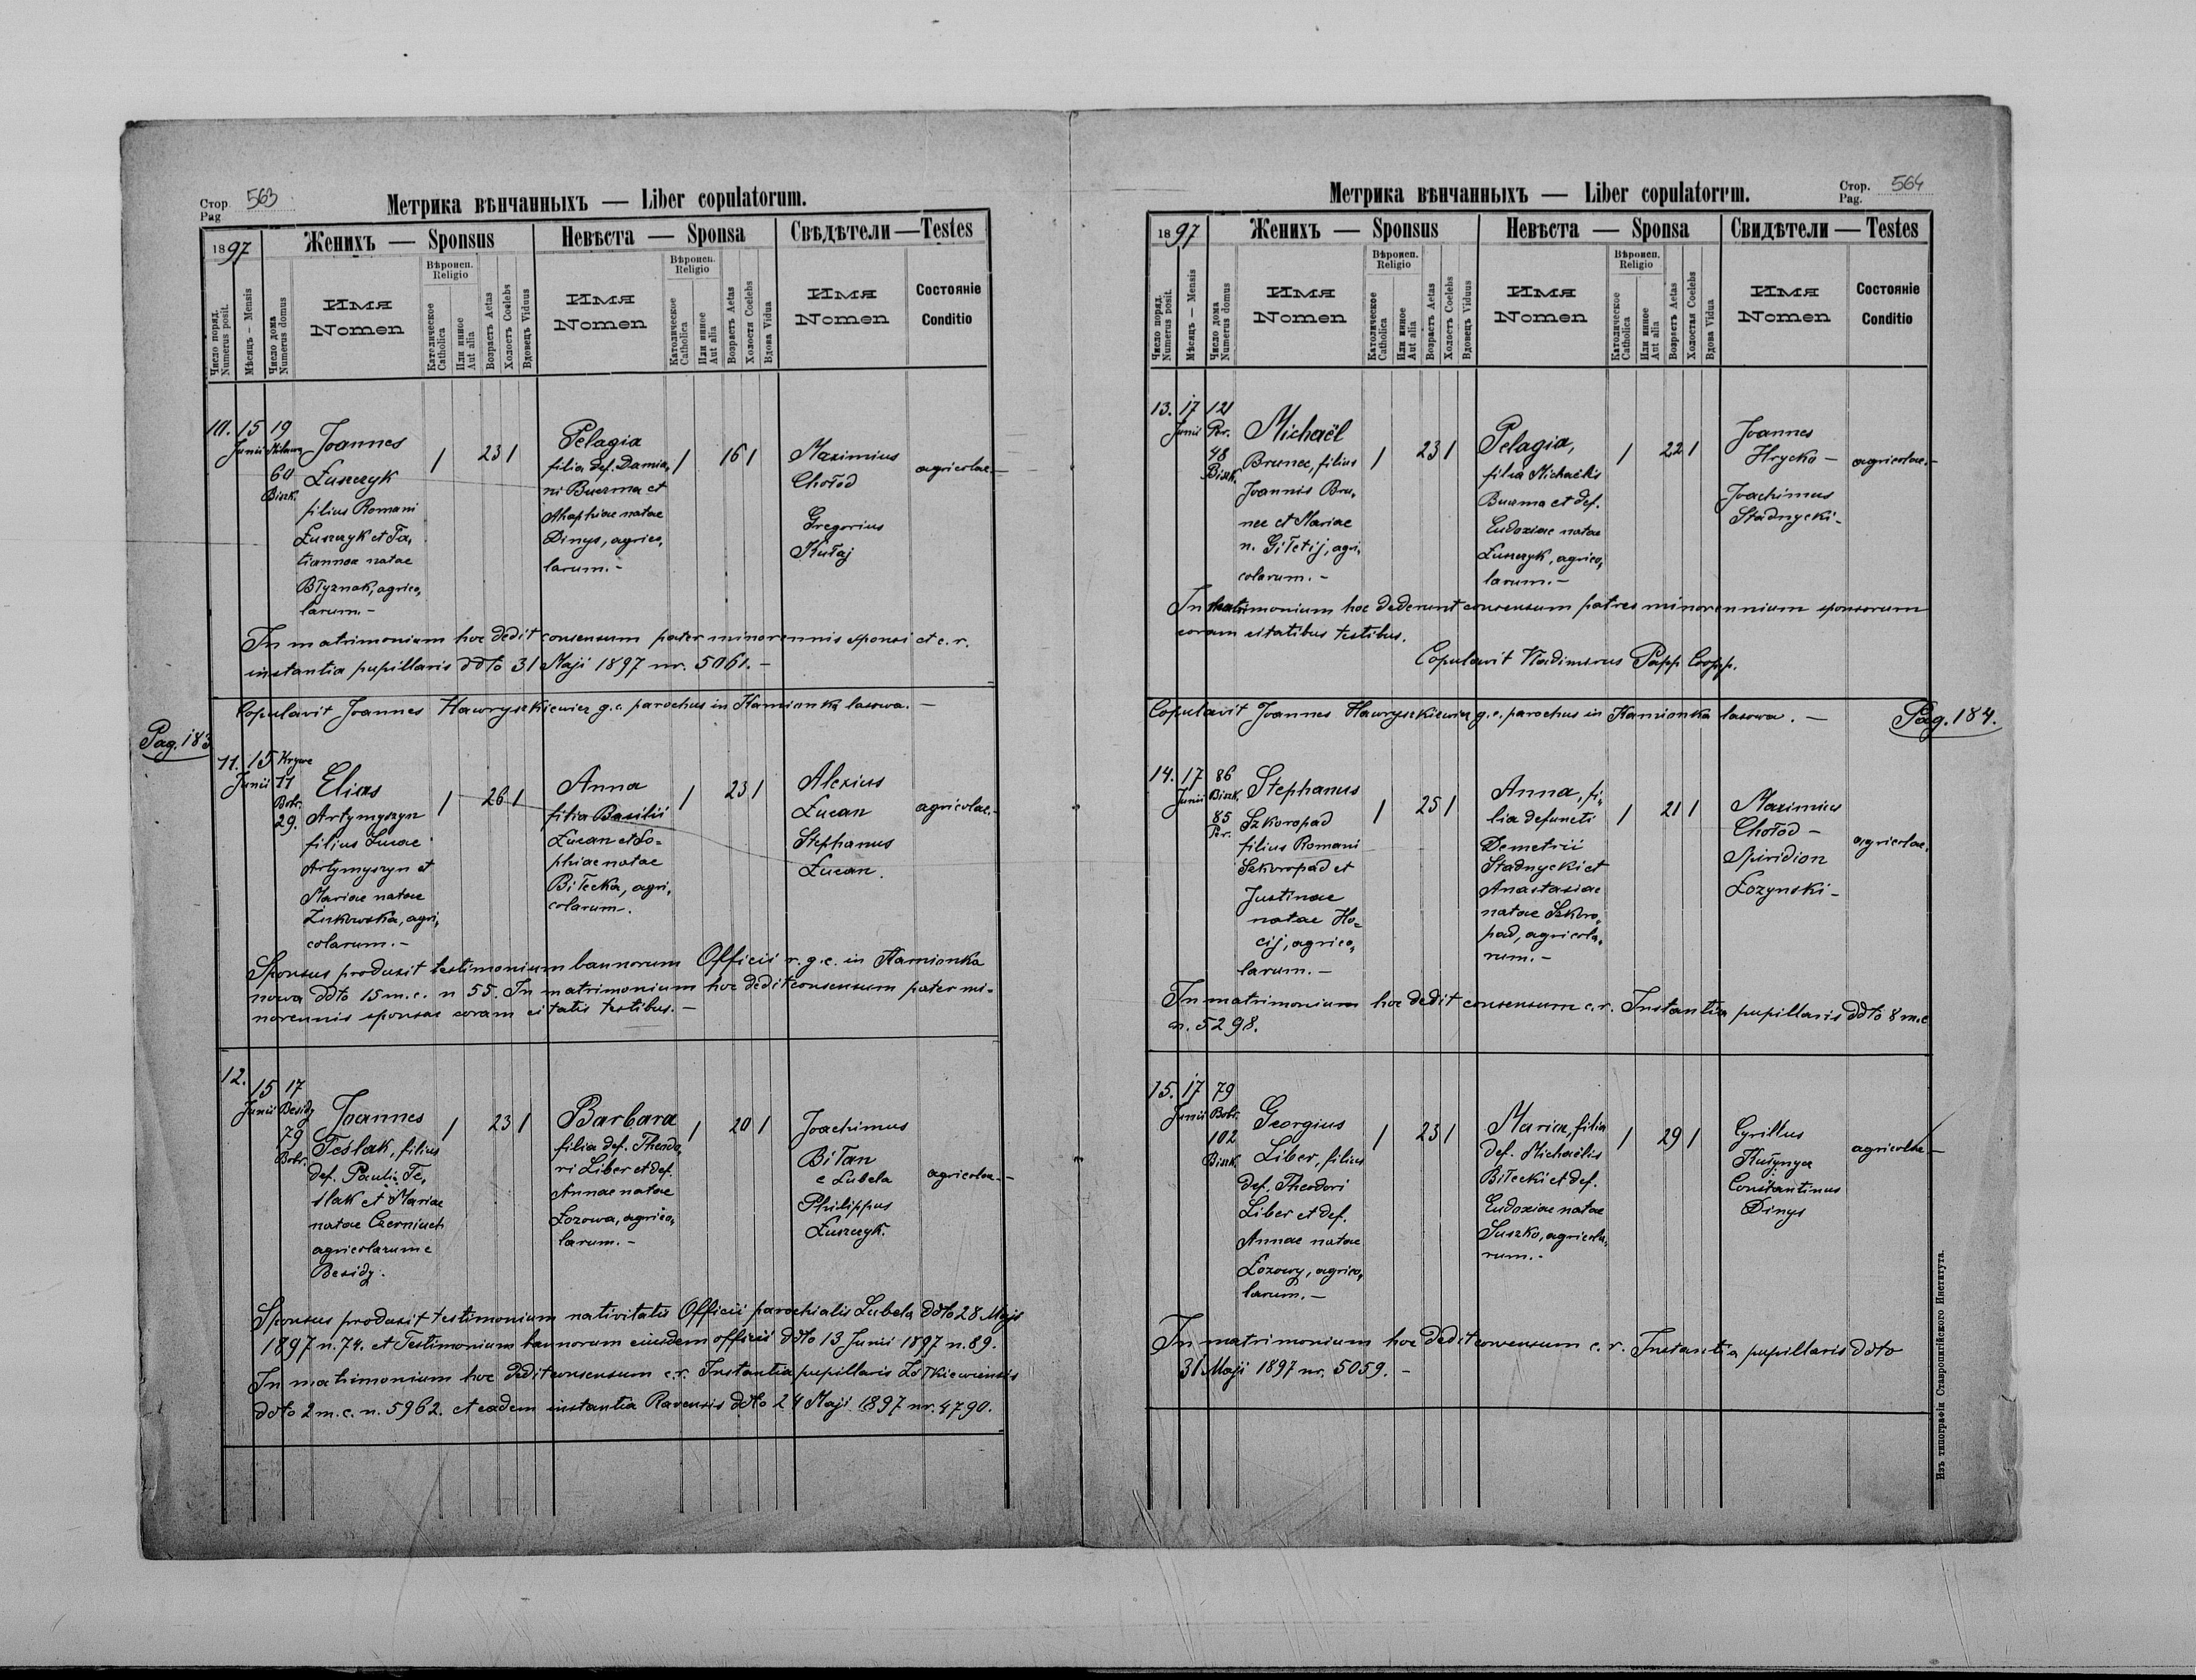 Стор. Pag 563
Метрика вѣнчанныхъ — Liber copulatorum.
1897
Женихъ — Sponsus
Невѣста — Sponsa
Свѣдѣтели — Testes
Число поряд. Numerus posit.
Мѣсяцъ — Mensis
Число дома Numerus domus
Имя Nomen
Вѣроисп. Religio
Католическое Catholica
Или инное Aut alia
Возрастъ Aetas
Холостъ Coelebs
Вдовецъ Viduus
Имя Nomen
Вѣроисп. Religio
Католическое Catholica
Или инное Aut alia
Возрастъ Aetas
Холостя Coelebs
Вдова Vidua
Имя Nomen
Состояніе Conditio
10. 15 Junii
19
60 Biszk.
Joannes
Łuszczyk
filius Romani
Łuszczyk et Ta„
tiannae natae
Błyznak, agrico„
larum. –
1 23 1
Pelagia
filia def. Damia„
ni Buczma et
Ahaphiae natae
Dinys, agrico„
larum. –
1 16 1
Maximius
Chołod
Gregorius
Kułaj
agricolae. –
In matrimonium hoc dedit consensum pater minorennis sponsi et c. r.
instantia pupillaris ddto 31 Maji 1897 nr. 5061. –
Copulavit Joannes Hawryszkiewicz g. c. parochus in Kamionka lasowa. –
Pag. 183
11. 15 Junii
Krywe
11
Bobr.
29.
Elias
Artymyszyn
filius Lucae
Artymyszyn et
Mariae natae
Żukowska, agri„
colarum. –
1 26 1
Anna
filia Basilii
Łucan et So=
phiae natae
Biłecka, agri„
colarum –.
1 23 1
Alexius
Łucan
Stephanus
Łucan.
agricolae. –
Sponsus produxit testimonium bannorum Officii r. g. c. in Kamionka
nowa ddto 15 m. c. n 55. In matrimonium hoc dedit consensum pater mi=
norennis sponsae coram citatis testibus. –
12.
15 Junii
17
Besidy
79
Bobr.
Joannes
Teslak, filius
def. Pauli Te„
slak et Mariae
natae Czerniuch
agricolarum e
Besidy.
1 23 1
Barbara
filia def. Theodo„
ri Liber et def.
Annae natae
Łozowa, agrico„
larum. –
1 20 1
Joachimus
Biłan
e Lubela
Philippus
Łuszczyk.
agricolae. –
Sponsus produxit testimonium nativitatis Officii parochialis Lubela ddto 28 Maji
1897 n. 74. et Testimonium bannorum eiusdem officii ddto 13 Junii 1897 n. 89.
In matrimonium hoc dedit consensum c. r. Instantia pupillaris Żółkiewiensis
ddto 2 m. c. n. 5962. et eadem instantia Ravensis ddto 24 Maji 1897 nr. 4790.
Стор. Pag. 564
Метрика вѣнчанныхъ — Liber copulatorum.
1897
Женихъ — Sponsus
Невѣста — Sponsa
Свидѣтели — Testes
Число поряд. Numerus posit.
Мѣсяцъ — Mensis
Число дома Numerus domus
Имя Nomen
Вѣроисп. Religio
Католическое Catholica
Или инное Aut alia
Возрастъ Aetas
Холостъ Coelebs
Вдовецъ Viduus
Имя Nomen
Вѣроисп. Religio
Католическое Catholica
Или инное Aut alia
Возрастъ Aetas
Холостая Coelebs
Вдова Vidua
Имя Nomen
Состояніе Conditio
13. 17 Junii
121
Per.
48
Biszk.
Michaël
Brunec, filius
Joannis Bru„
nec et Mariae
n. Giletij, agri„
colarum. –
1 23 1
Pelagia,
filia Michaëlis
Buczma et def.
Eudoxiae natae
Łuszczyk, agrico„
larum. –
1 22 1
Joannes
Hrycko –
Joachimus
Stadnycki –
agricolae. –
In matrimonium hoc dederunt consensum patres minorennium sponsorum
coram citatibus testibus.
Copulavit Wladimirus Papp Coop.
Copulavit Joannes Hawryszkiewicz g. c. parochus in Kamionka lasowa. –
Pag. 184.
14. 17 Junii
86
Biszk.
85
Per.
Stephanus
Szkoropad
filius Romani
Szkoropad et
Justinae
natae Ho=
cij, agrico„
larum. –
1 25 1
Anna, fi„
lia defuncti
Demetrii
Stadnycki et
Anastasiae
natae Szkoro„
pad, agricola„
rum. –
1 21 1
Maximius
Chołod –
Spiridion
Łozynski –
agricolae.
In matrimonium hoc dedit consensum c. r. Instantia pupillaris ddto 8 m. c
n. 5298.
15. 17 Junii
79
Bobr.
102
Biszk.
Georgius
Liber, filius
def. Theodori
Liber et def.
Annae natae
Łozowy, agrico„
larum. –
1 23 1
Maria, filia
def. Michaëlis
Biłecki et def.
Eudoxiae natae
Suszko, agricola„
rum. –
1 29 1
Cyrillus
Kułynycz
Constantinus
Dinys
agricolae –
In matrimonium hoc dedit consensum c. r. Instantia pupillaris ddto
31 Maji 1897 nr. 5059. –
Изъ типографіи Ставропигійского Института.